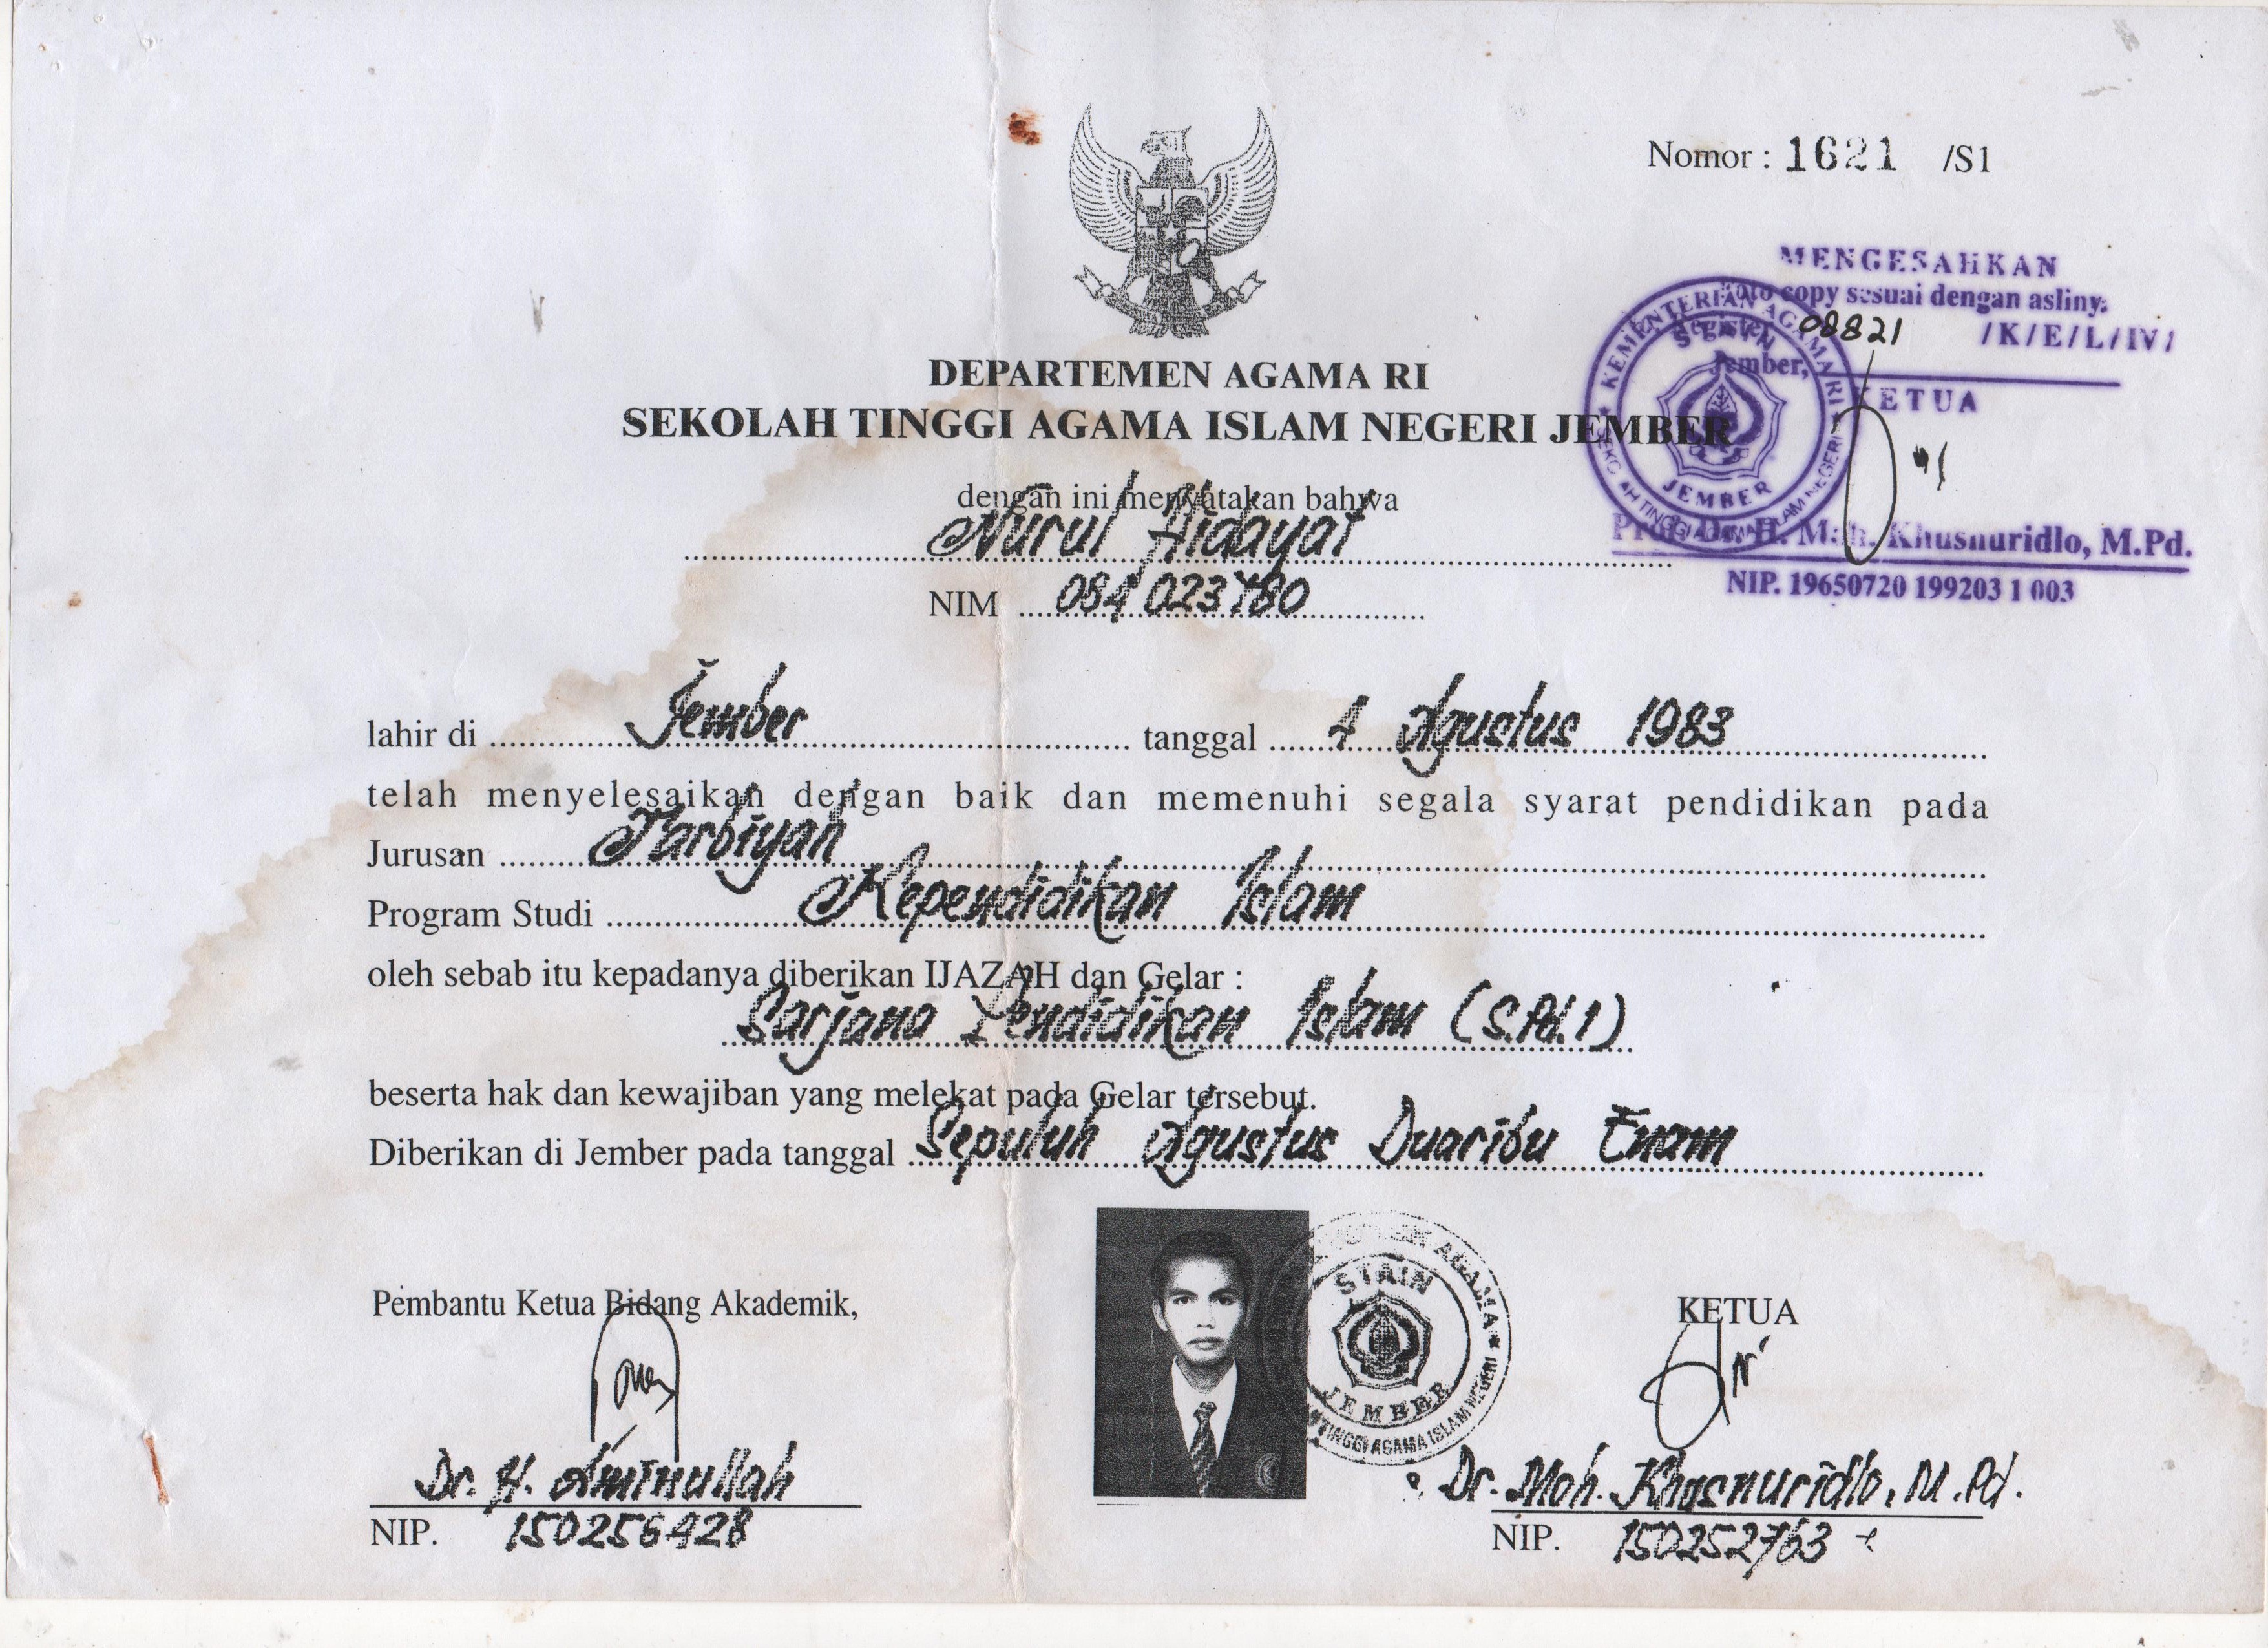 Nomor : 1621 /S1
MENGESAHKAN
Foto copy sesuai dengan asliny.
Register 08821 /K/E/L/IV/
Jember,
KETUA
KEMENTERIAN AGAMA RI
STAIN
JEMBER
SEKOLAH TINGGI AGAMA ISLAM NEGERI
Prof. Dr. H. Moh. Khusnuridlo, M.Pd.
NIP. 19650720 199203 1 003
DEPARTEMEN AGAMA RI
SEKOLAH TINGGI AGAMA ISLAM NEGERI JEMBER
dengan ini menyatakan bahwa
Nurul Hidayat
NIM 084 023 780
lahir di Jember tanggal 4 Agustus 1983
telah menyelesaikan dengan baik dan memenuhi segala syarat pendidikan pada
Jurusan Tarbiyah
Program Studi Kependidikan Islam
oleh sebab itu kepadanya diberikan IJAZAH dan Gelar :
Sarjana Pendidikan Islam (S.Pd.I)
beserta hak dan kewajiban yang melekat pada Gelar tersebut.
Diberikan di Jember pada tanggal Sepuluh Agustus Duaribu Enam
Pembantu Ketua Bidang Akademik,
Dr. H. Aminullah
NIP. 150256428
AGAMA
STAIN
JEMBER
TINGGI AGAMA ISLAM NEGERI
KETUA
Dr. Moh. Khusnuridlo, M.Pd.
NIP. 150252763